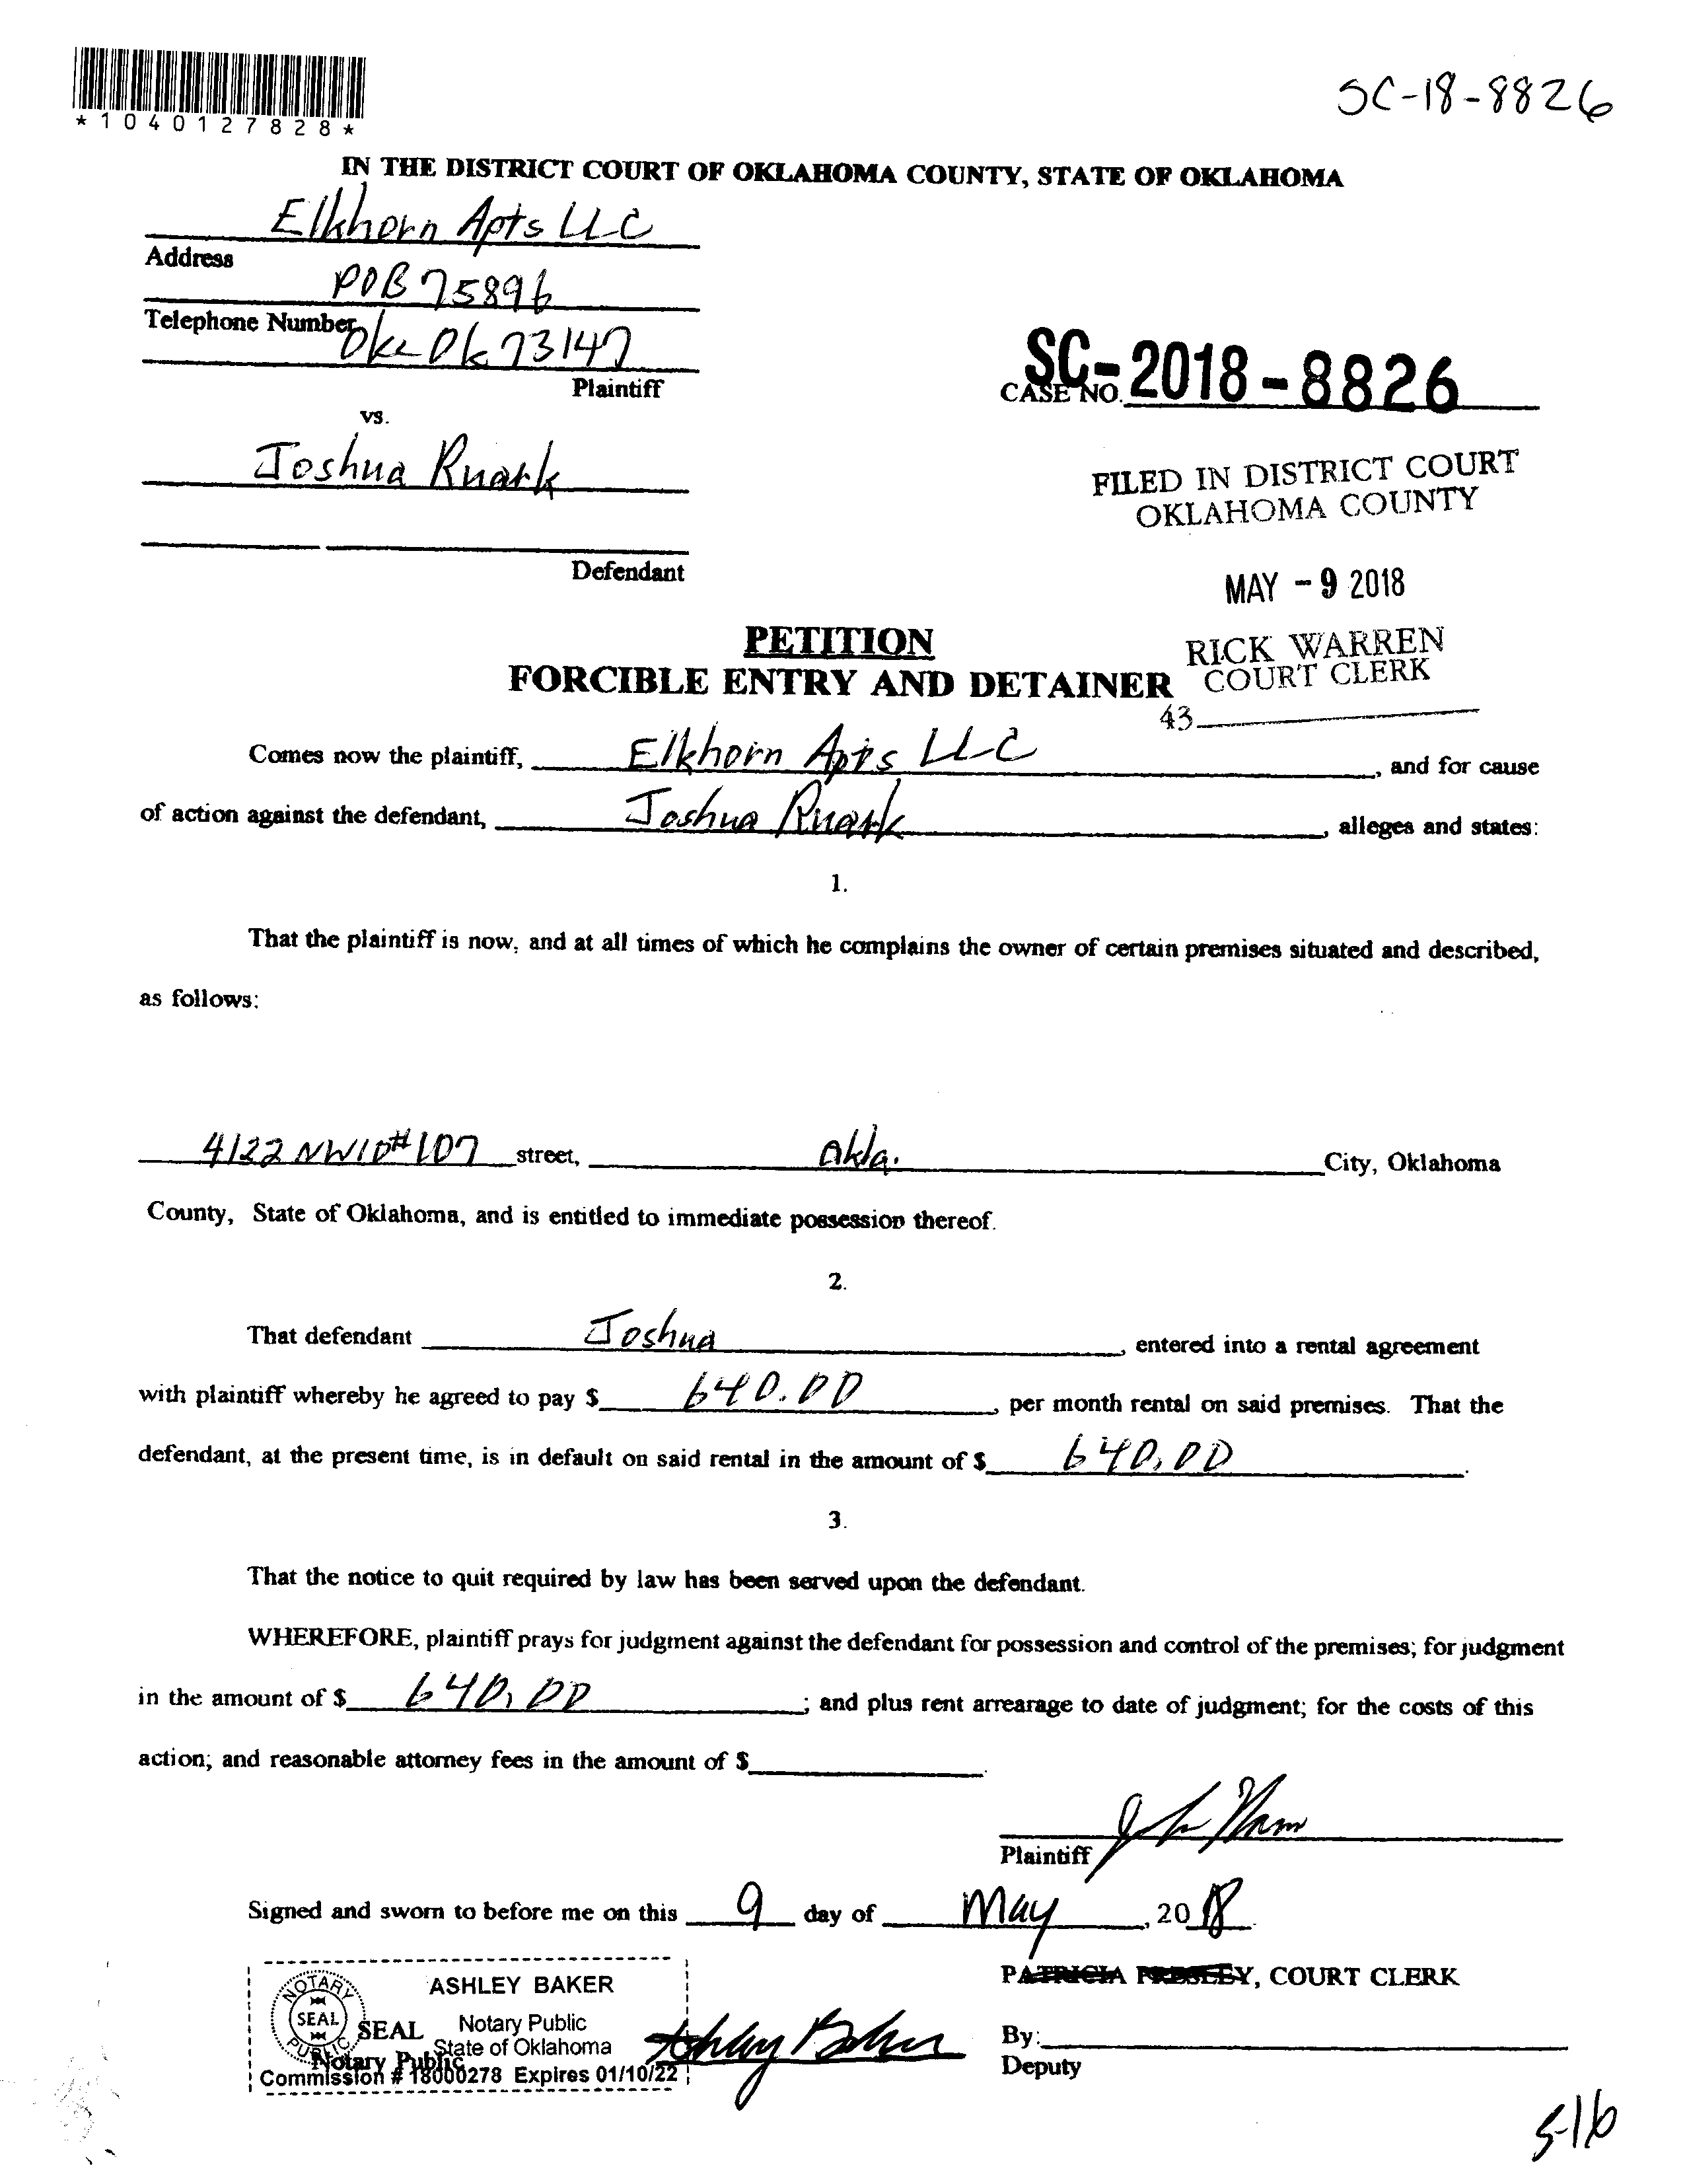 *1040127828*
SC-18-8826
IN THE DISTRICT COURT OF OKLAHOMA COUNTY, STATE OF OKLAHOMA
Elkhorn Apts LLC
Address
POB 75896
Telephone Number
Okc Ok 73147
Plaintiff
CASE NO. SC-2018-8826
vs.
Joshua Ruark
FILED IN DISTRICT COURT
OKLAHOMA COUNTY
Defendant
MAY - 9 2018
PETITION
RICK WARREN
FORCIBLE ENTRY AND DETAINER
COURT CLERK
43
Comes now the plaintiff, Elkhorn Apts LLC, and for cause
of action against the defendant, Joshua Ruark, alleges and states:
1.
That the plaintiff is now, and at all times of which he complains the owner of certain premises situated and described,
as follows:
4122 NW10 #107 street, Okla. City, Oklahoma
County, State of Oklahoma, and is entitled to immediate possession thereof.
2.
That defendant Joshua, entered into a rental agreement
with plaintiff whereby he agreed to pay $ 640.00, per month rental on said premises. That the
defendant, at the present time, is in default on said rental in the amount of $ 640.00.
3.
That the notice to quit required by law has been served upon the defendant.
WHEREFORE, plaintiff prays for judgment against the defendant for possession and control of the premises; for judgment
in the amount of $ 640.00; and plus rent arrearage to date of judgment; for the costs of this
action; and reasonable attorney fees in the amount of $ .
Plaintiff
Signed and sworn to before me on this 9 day of May, 2018.
PATRICIA PRESLEY, COURT CLERK
ASHLEY BAKER
NOTARY PUBLIC
SEAL
SEAL
Notary Public
State of Oklahoma
Notary Public
Commission # 18000278 Expires 01/10/22
Ashley Baker
By:
Deputy
5-16